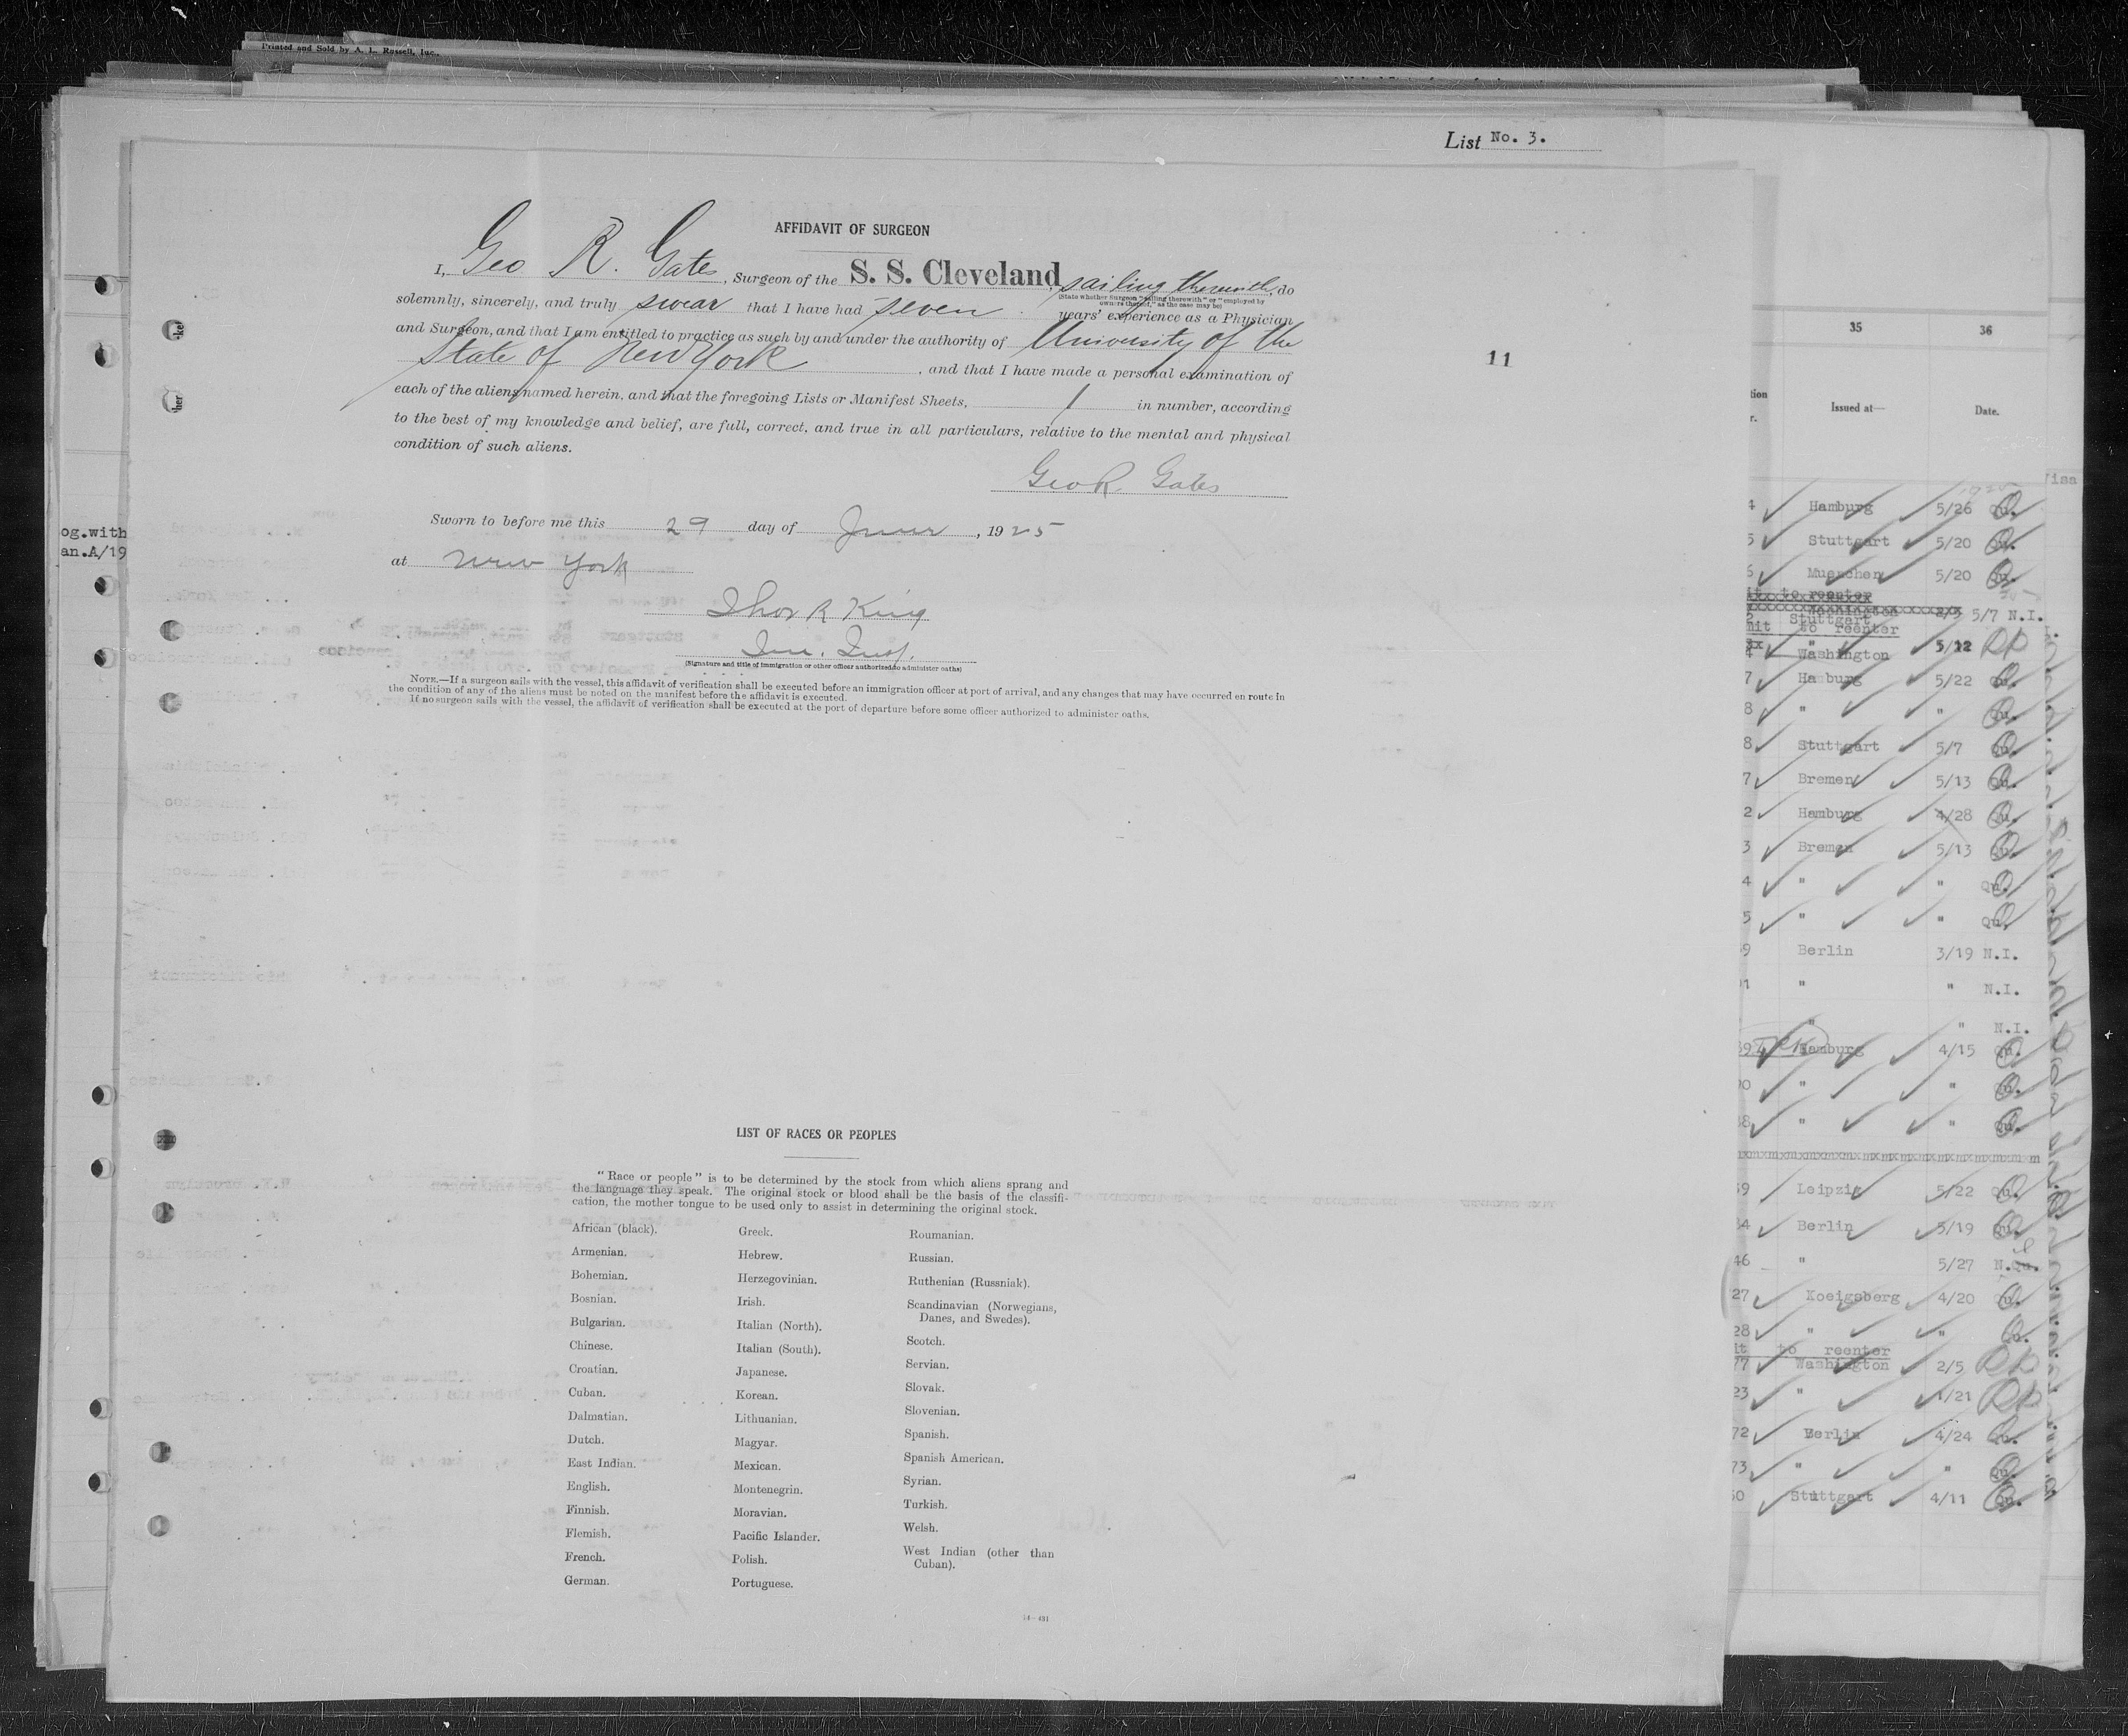 Printed and Sold by A. L. Russell, Inc.
List No. 3.
AFFIDAVIT OF SURGEON
I, Geo R. Gates, Surgeon of the S. S. Cleveland, sailing therewith, do
(State whether Surgeon "sailing therewith" or "employed by
owners thereof," as the case may be)
solemnly, sincerely, and truly swear that I have had seven years' experience as a Physician
and Surgeon, and that I am entitled to practice as such by and under the authority of University of the
State of New York, and that I have made a personal examination of
each of the aliens named herein, and that the foregoing Lists or Manifest Sheets, 1 in number, according
to the best of my knowledge and belief, are full, correct, and true in all particulars, relative to the mental and physical
condition of such aliens.
Geo R. Gates
Sworn to before me this 29 day of June, 1925
at New York
Thos R King
Im. Insp.
(Signature and title of immigration or other officer authorized to administer oaths)
NOTE.—If a surgeon sails with the vessel, this affidavit of verification shall be executed before an immigration officer at port of arrival, and any changes that may have occurred en route in
the condition of any of the aliens must be noted on the manifest before the affidavit is executed.
If no surgeon sails with the vessel, the affidavit of verification shall be executed at the port of departure before some officer authorized to administer oaths.
11
LIST OF RACES OR PEOPLES
"Race or people" is to be determined by the stock from which aliens sprang and
the language they speak. The original stock or blood shall be the basis of the classifi-
cation, the mother tongue to be used only to assist in determining the original stock.
African (black).
Armenian.
Bohemian.
Bosnian.
Bulgarian.
Chinese.
Croatian.
Cuban.
Dalmatian.
Dutch.
East Indian.
English.
Finnish.
Flemish.
French.
German.
Greek.
Hebrew.
Herzegovinian.
Irish.
Italian (North).
Italian (South).
Japanese.
Korean.
Lithuanian.
Magyar.
Mexican.
Montenegrin.
Moravian.
Pacific Islander.
Polish.
Portuguese.
Roumanian.
Russian.
Ruthenian (Russniak).
Scandinavian (Norwegians,
Danes, and Swedes).
Scotch.
Servian.
Slovak.
Slovenian.
Spanish.
Spanish American.
Syrian.
Turkish.
Welsh.
West Indian (other than
Cuban).
14—431
og.with
an.A/19
ker
her
35 36
tion
r. Issued at— Date.
Visa
4 Hamburg 5/26 Qu.
5 Stuttgart 5/20 Qu.
6 Muenchen 5/20 Qu.
it to reenter
2 Stuttgart 5/7 N.I.
mit to reenter
4 Washington 5/12 RP
7 Ha burg 5/22 Qu.
8 " " Qu.
8 Stuttgart 5/7 Qu.
7 Bremen 5/13 Qu.
2 Hamburg 4/28 Qu.
3 Bremen 5/13 Qu.
4 " " Qu.
5 " " Qu.
9 Berlin 3/19 N.I.
1 " " N.I.
" " N.I.
Hamburg 4/15 Qu.
0 " " Qu.
8 " " Qu.
59 Leipzig 5/22 Qu.
4 Berlin 5/19 Qu.
46 " 5/27 N.Qu.
27 Koeigsberg 4/20 Qu.
28 " " Qu.
it to reenter
77 Washington 2/5 RP
23 " 1/21 RP
72 Berlin 4/24 Qu.
73 " " Qu.
50 Stuttgart 4/11 Qu.